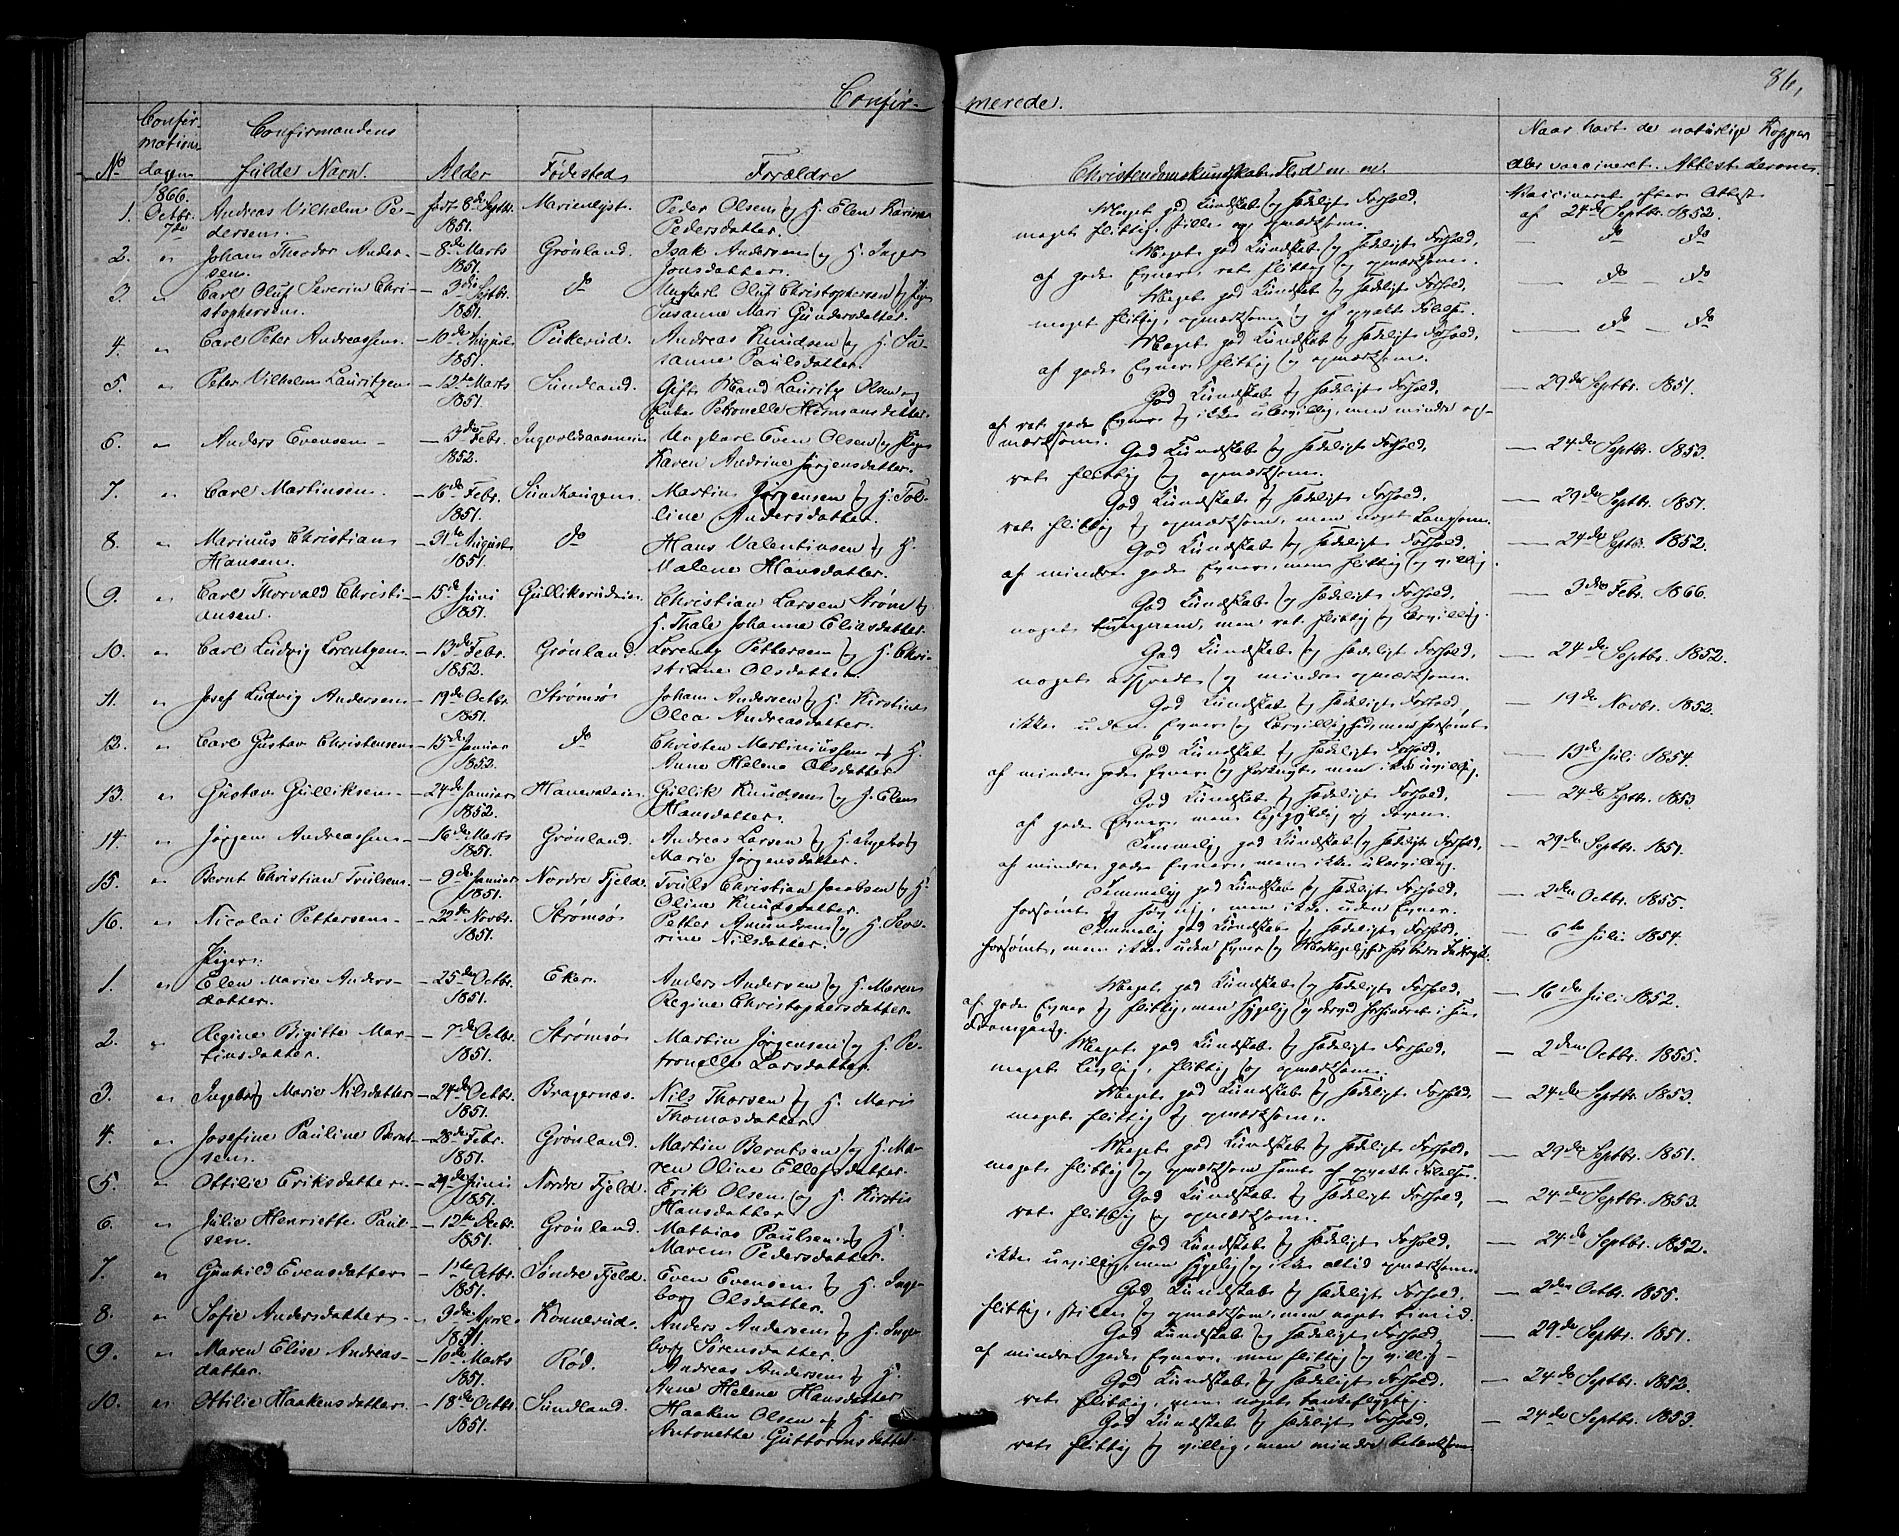 86,
Confir-
merede.
Confir-
mations
dagen
Confirmandens
fulde Navn.
No
Alder
Fødested
Forældre
Christendomskundskab, Flid m. m.
Naar havt de naturlige Kopper
eller vaccineret. Attest derom.
1866.
1. Octbr. 7de Andreas Vilhelm Pe- født 8de Septbr. Marienlyst. Peder Olsen og H. Elen Karine Meget god Kundskab og sædeligt Forhold, Vaccineret efter Attest
dersen. 1851. Pedersdatter. meget flittig, stille og opmærksom. af 24de Septbr. 1852.
2. " Johan Theodor Ander- - 8de Marts Grønland. Isak Andersen og H. Inger Meget god Kundskab og sædeligt Forhold, — do do
sen. 1851. Jonsdatter. af gode Evner, ret flittig og opmærksom.
3. " Carl Oluf Severin Chri- - 3de Septbr. do Ungkarl Oluf Christophersen og Pigen Meget god Kundskab og sædeligt Forhold, — do — do
stophersen. 1851. Susanne Mari Gundersdatter. meget flittig, opmærksom og af Følelse.
4. " Carl Peter Andreassen. - 10de August Pukerud. Andreas Knudsen og H. Su- Meget god Kundskab og sædeligt Forhold, — do — do
1851. sanne Paulsdatter. af gode Evner, flittig og opmærksom.
5. " Peter Vilhelm Lauritzen - 12te Marts Sundland. Gift Mand Lauritz Olsen og God Kundskab og sædeligt Forhold, — 29de Septbr. 1851.
1851. Enke Petronelle Hermansdatter. af ret gode Evner og ikke ulærvillig, men mindre op-
mærksom.
6. " Anders Evensen - - 3die Febr. Ungkarl Even Olsen og Pigen God Kundskab og sædeligt Forhold, — 24de Septbr. 1853.
1852. Karen Andrine Jørgensdatter. ret flittig og opmærksom.
7. " Carl Martinsen. - 16de Febr. Sundhaugen. Martin Jørgensen og H. Tol- God Kundskab og sædeligt Forhold, — 29de Septbr. 1851.
1851. line Andersdatter. ret flittig og opmærksom, men noget langsom.
8. " Marinus Christian - 31te August do Hans Valentinsen og H. God Kundskab og sædeligt Forhold, — 24de Septbr. 1852.
Hansen. 1851. Malene Hansdatter. af mindre gode Evner, men flittig og villig.
9. " Carl Thorvald Christi- - 15de Juni Gulliksrudeie Christian Larsen Strøm og God Kundskab og sædeligt Forhold, — 3die Febr. 1866.
ansen. 1851. H. Thale Johanne Eliasdatter. noget tungnem, men ret flittig og lærvillig.
10. " Carl Ludvig Lorentzen - 13de Febr. Grønland. Lorentz Pettersen og H. Chri- God Kundskab og sædeligt Forhold, — 24de Septbr. 1852.
1852. stiane Olsdatter. noget adspredt og mindre opmærksom.
11. " Josef Ludvig Andersen - 19de Octbr. Strømsø Johan Andersen og H. Kirstine God Kundskab og sædeligt Forhold, — 19de Novbr. 1852.
1851. Olea Andreasdatter. ikke uden Evner og Lærvillighed, men forsømt.
12. " Carl Gustav Christensen - 15de Januar do Christen Martiniussen og H. God Kundskab og sædeligt Forhold, — 13de Juli 1854.
1852. Anne Helene Olsdatter. af mindre gode Evner og men ikke uvillig.
13. " Gustav Gulliksen - 24de Januar Hanevoldeie Gullik Knudsen og H. Elen God Kundskab og sædeligt Forhold, — 24de Septbr. 1853.
1852. Hansdatter. af gode Evner, men ligegyldig og doven.
14. " Jørgen Andreassen - 16de Marts Grønland. Andreas Larsen og H. Ingeborg Temmelig god Kundskab og sædeligt Forhold, — 29de Septbr. 1851.
1851. Marie Jørgensdatter. af mindre gode Evner, men ikke ulærvillig.
15. " Bernt Christian Trulsen. - 9de Januar Nordre Fjeld. Truls Christian Jacobsen og H. Temmelig god Kundskab og sædeligt Forhold, — 2den Octbr. 1855.
1851. Oline Knudsdatter. forsømt og , men ikke uden Evner.
16. " Nicolai Pettersen - 22de Novbr. Strømsø Petter Amundsen og H. Flo- Temmelig god Kundskab og sædeligt Forhold, — 6te Juli 1854.
1851. rine Nilsdatter. forsømt, men ikke uden Evner og
Piger:
1. " Elen Marie Anders- - 25de Octbr. Eker. Anders Andersen og H. Maren Meget god Kundskab og sædeligt Forhold, — 16de Juli 1852.
datter. 1851. Regine Christophersdatter. af gode Evner og flittig, men sygelig og derved forhindret i sin
Fremgang.
2. " Regine Birgitte Mar- - 7de Octbr. Strømsø Martin Jørgensen og H. Pe- Meget god Kundskab og sædeligt Forhold, — 2den Octbr. 1855.
tinsdatter. 1851. tronelle Larsdatter. meget livlig, flittig og opmærksom.
3. " Ingeborg Marie Nilsdatter - 24de Octbr. Bragernæs. Nils Thorsen og H. Mari Meget god Kundskab og sædeligt Forhold, — 24de Septbr. 1853.
1851. Thomasdatter. meget flittig og opmærksom.
4. " Josefine Pauline Bernt- - 28de Febr. Grønland. Martin Berntsen og H. Ma- Meget god Kundskab og sædeligt Forhold, — 29de Septbr. 1851.
sen. 1851. ren Oline Ellefsdatter. meget flittig og opmærksom samt af Følelse.
5. " Ottilie Eriksdatter - 29de Juni Nordre Fjeld. Erik Olsen og H. Kirsti God Kundskab og sædeligt Forhold, — 24de Septbr. 1853.
1851. Hansdatter ret flittig og opmærksom.
6. " Julie Henriette Paul- - 12te Decbr. Grønland. Mathias Paulsen og H. God Kundskab og sædeligt Forhold, — 24de Septbr. 1852.
sen. 1851. Maren Pedersdatter. ikke uvillig, men sygelig og ikke altid opmærksom.
7. " Gunhild Evensdatter - 1ste Octbr. Søndre Fjeld. Even Evensen og H. Inge- God Kundskab og sædeligt Forhold, — 2den Octbr. 1855.
1851. borg Olsdatter. flittig, stille og opmærksom, men noget timid.
8. " Sofie Andersdatter - 3die April Konnerud. Anders Andersen og H. Inge- God Kundskab og sædeligt Forhold, — 29de Septbr. 1851.
1851. borg Sørensdatter. af mindre gode Evner, men flittig og villig.
9. " Maren Elise Andreas- - 10de Marts Rød. Andreas Andersen og H. God Kundskab og sædeligt Forhold, — 24de Septbr. 1852.
datter. 1851. Anne Helene Hansdatter ret flittig, men noget tankeflygtig.
10. " Ottilie Haakensdatter. - 18de Octbr. Sundland. Haaken Olsen og H. God Kundskab og sædeligt Forhold, — 24de Septbr. 1853.
1851. Antonette Guttormsdatter. ret flittig og villig, men mindre betænksom